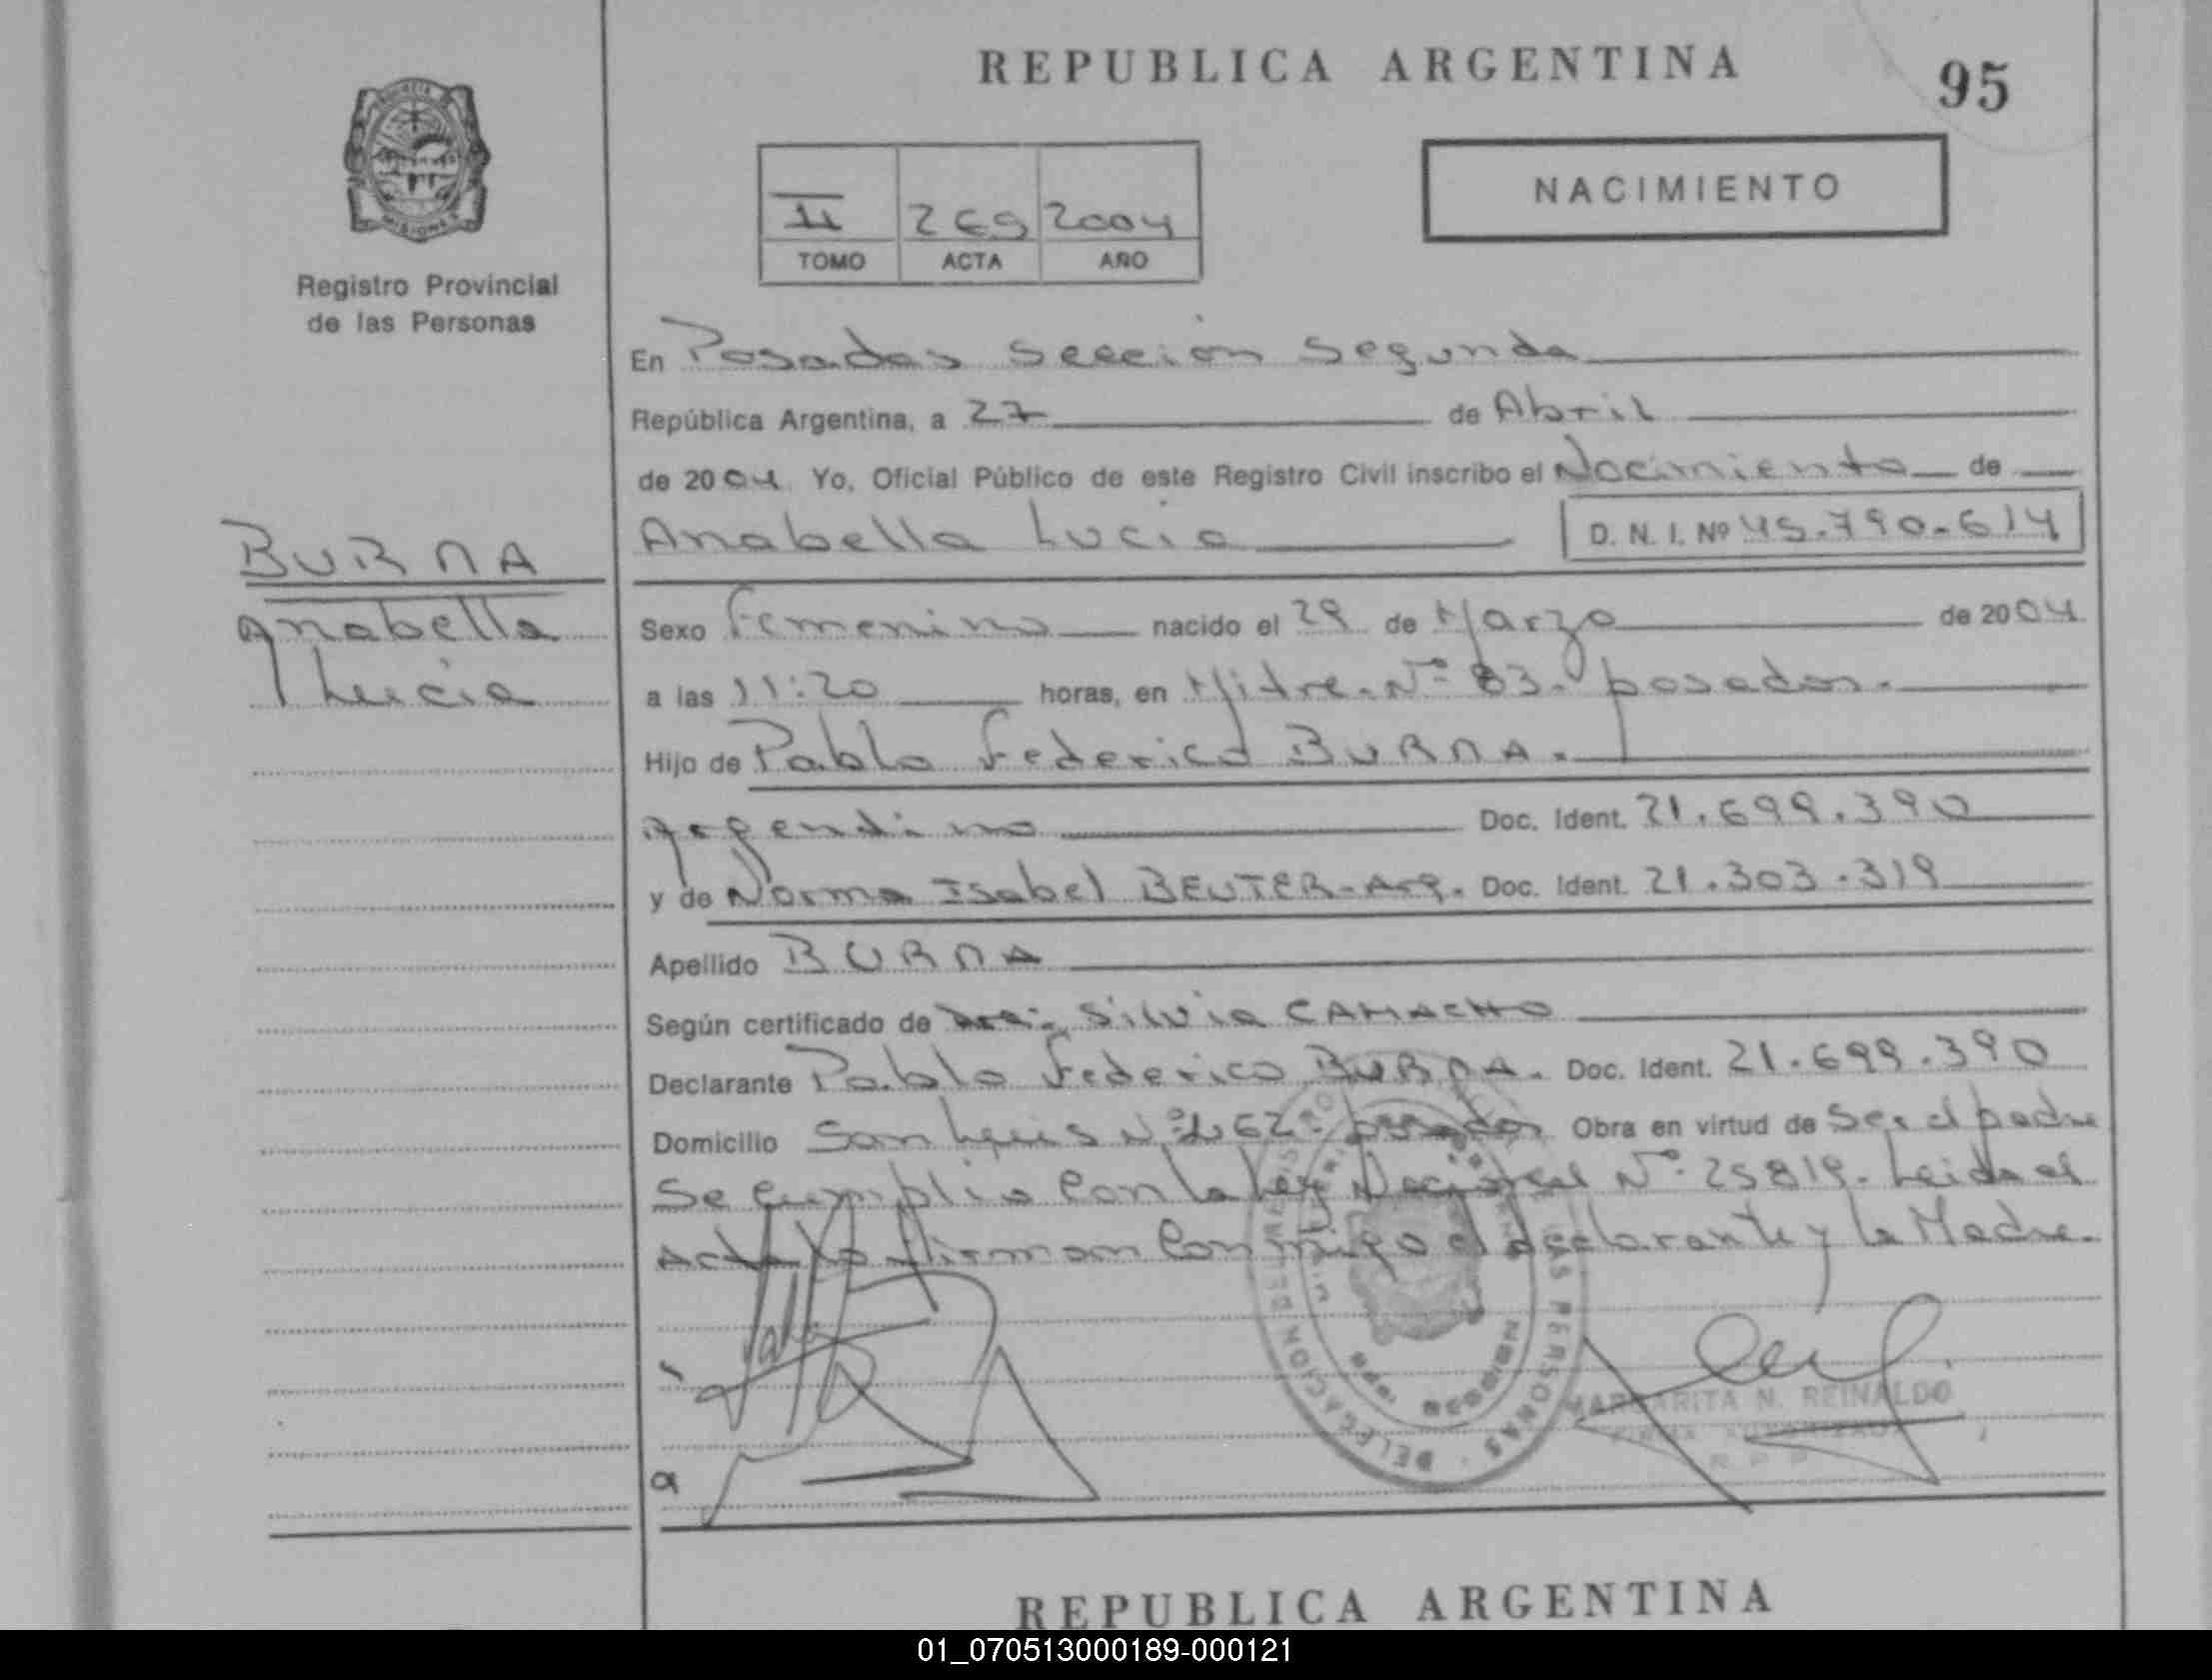 REPUBLICA ARGENTINA
95
NACIMIENTO
II 269 2004
TOMO ACTA AÑO
MISIONES
Registro Provincial
de las Personas
En Posadas Sección Segunda
República Argentina, a 27 de Abril
de 2004 Yo, Oficial Público de este Registro Civil inscribo el Nacimiento de
Anabella Lucia D. N. I. Nº 45.790.614
BURNA
Anabella
Lucia
Sexo Femenino nacido el 29 de Marzo de 2004
a las 11:20 horas, en Mitre Nº 83. posadas.
Hijo de Pablo Federico BURNA.
Argentino Doc. Ident. 21.699.390
y de Norma Isabel BEUTER-Arg. Doc. Ident. 21.303.319
Apellido BURNA
Según certificado de Dra: Silvia CAMACHO
Declarante Pablo Federico BURNA. Doc. Ident. 21.699.390
Domicilio San Luis Nº posadas Obra en virtud de Ser el padre
Se cumplio con la ley Nacional Nº 25819. Leida el
Acta la firman conmigo el declarante y la Madre.
DELEGACION PERSONAS
MARGARITA N. REINALDO
FIRMA AUTORIZADA
R P P
a
REPUBLICA ARGENTINA
01_070513000189-000121